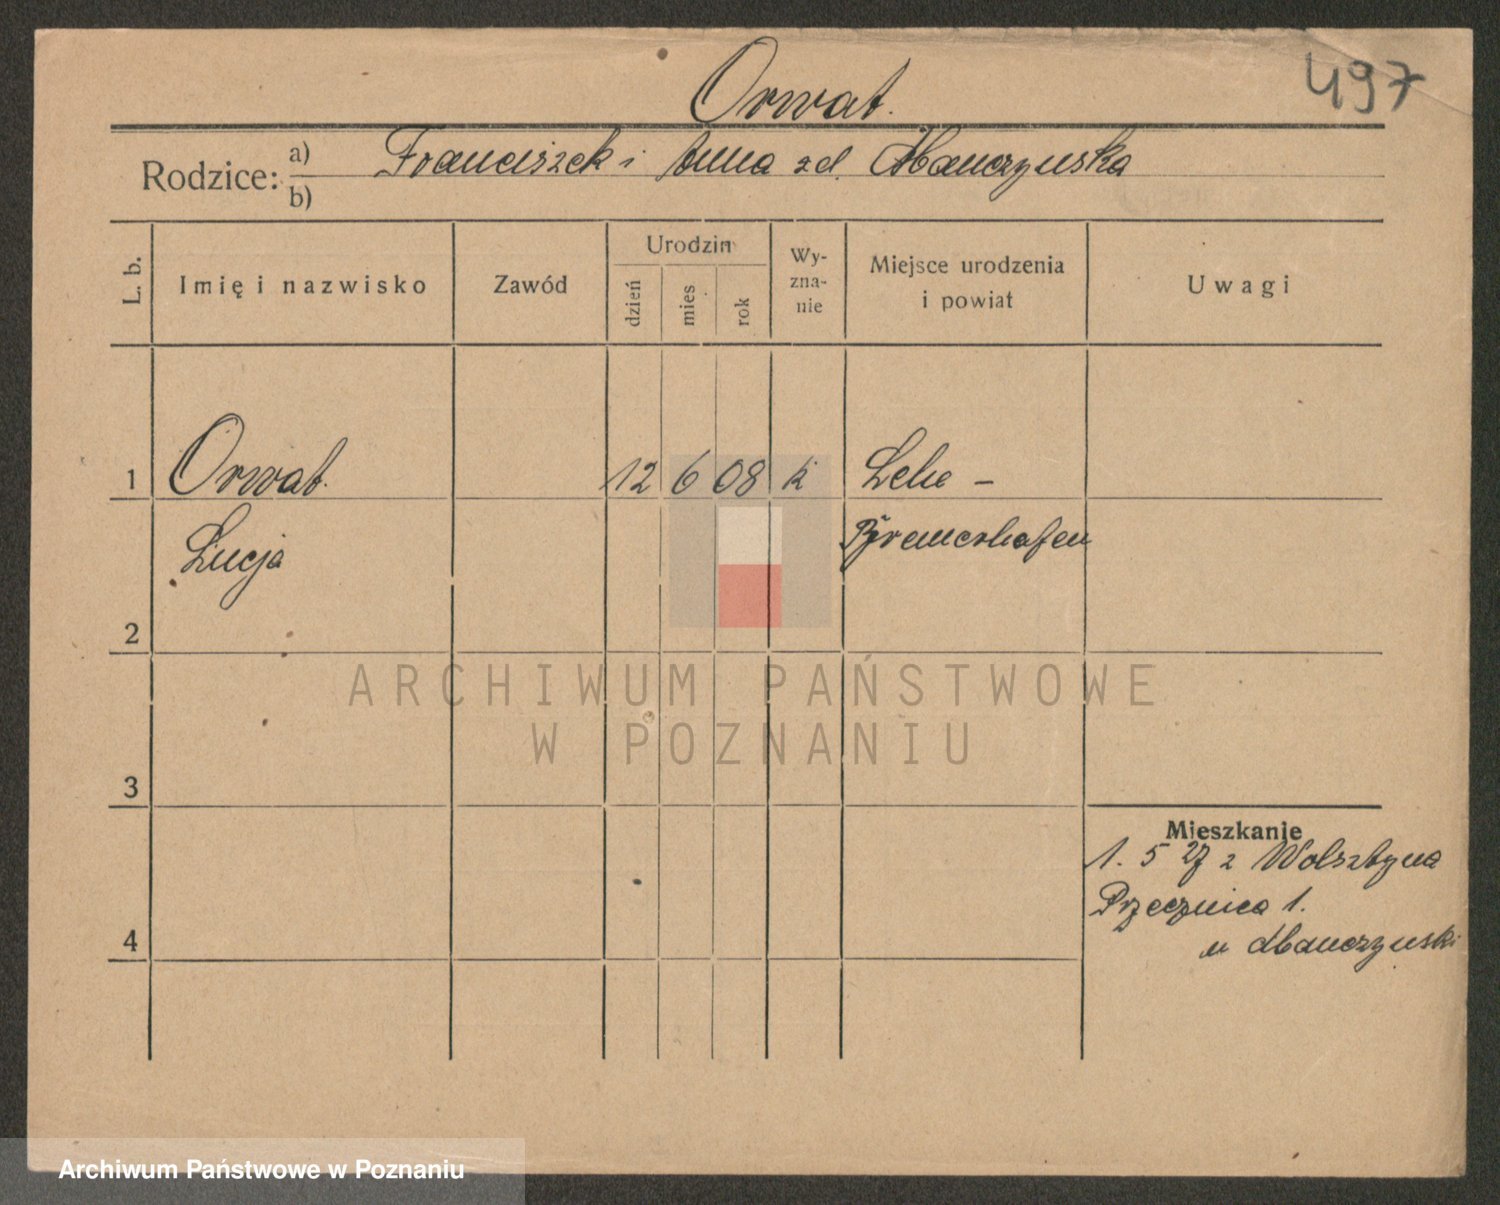 497
Orwat.
Rodzice: a) Franciszek i Anna zd.
b)
L. b.
Imię i nazwisko
Zawód
Urodzin
dzień
mies
rok
Wy-
zna-
nie
Miejsce urodzenia
i powiat
Uwagi
1 Orwat. 12 6 08 k Lehe -
Łucja Bremerhafen
2
3
4
Mieszkanie
1. 5 27 z Wolsztyna
Przecznica 1.
u
ARCHIWUM PAŃSTWOWE
W POZNANIU
Archiwum Państwowe w Poznaniu